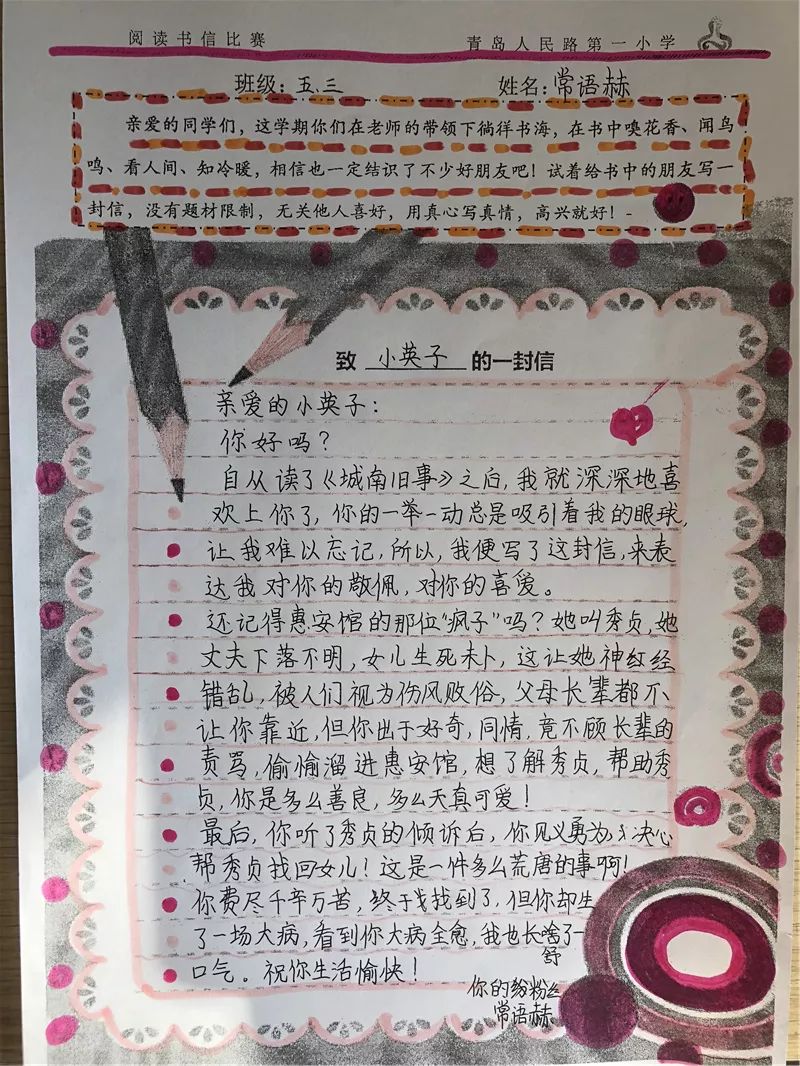 阅读书信比赛 青岛人民路第一小学
班级：五.三 姓名：常语赫
亲爱的同学们，这学期你们在老师的带领下徜徉书海，在书中嗅花香、闻鸟
鸣、看人间、知冷暖，相信也一定结识了不少好朋友吧！试着给书中的朋友写一
封信，没有题材限制，无关他人喜好，用真心写真情，高兴就好！
致 小英子 的一封信
亲爱的小英子：
你好吗？
自从读了《城南旧事》之后，我就深深地喜
欢上你了，你的一举一动总是吸引着我的眼球，
让我难以忘记，所以，我便写了这封信，来表
达我对你的敬佩，对你的喜爱。
还记得惠安馆的那位“疯子”吗？她叫秀贞，她
丈夫下落不明，女儿生死未卜，这让她神经经
错乱，被人们视为伤风败俗，父母长辈都不
让你靠近，但你出于好奇，同情，竟不顾长辈的
责骂，偷偷溜进惠安馆，想了解秀贞，帮助秀
贞，你是多么善良，多么天真可爱！
最后，你听了秀贞的倾诉后，你见义勇为，决心
帮秀贞找回女儿！这是一件多么荒唐的事啊！
你费尽千辛万苦，终于找到了，但你却生
了一场大病，看到你大病全愈，我也长舒了一
口气。祝你生活愉快！
你的粉丝
常语赫